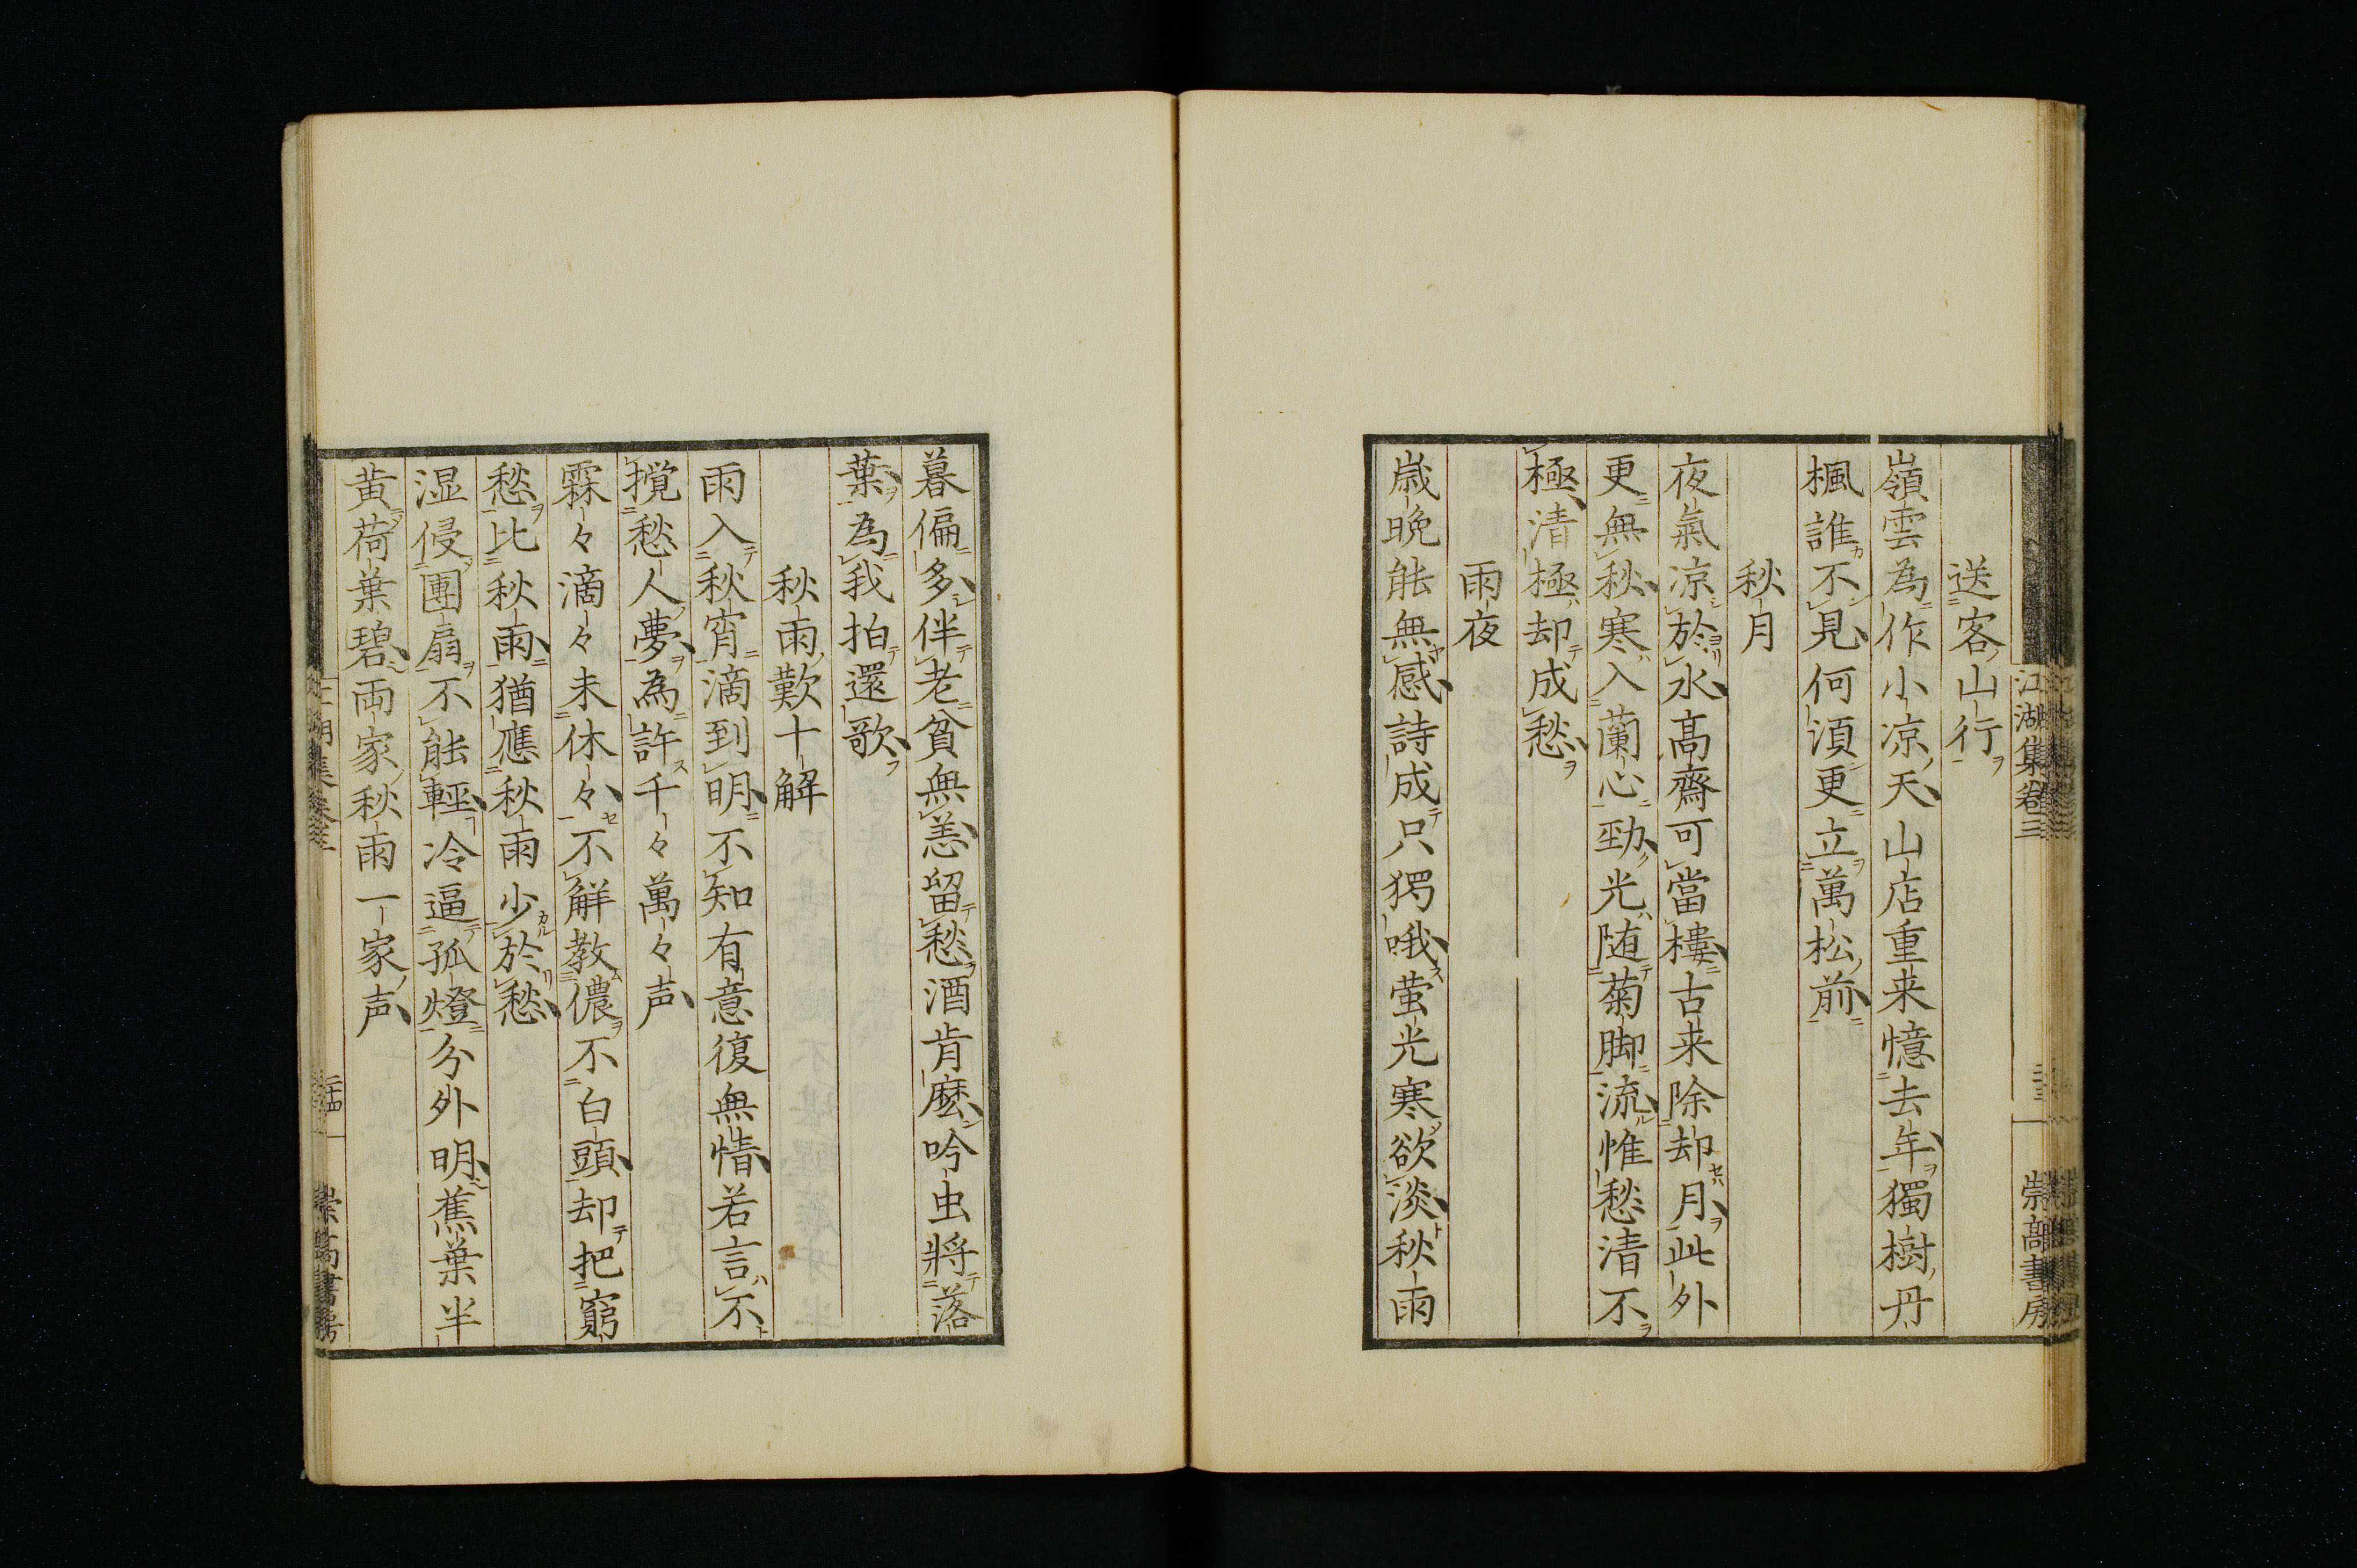 江湖集卷三
崇高書房
送客山行
嶺雲為作小凉天山店重来憶去年獨樹丹
楓誰不見何須更立萬松前
秋月
夜氣凉於水髙齋可當樓古来除却月此外
更無秋寒入蘭心勁光随菊脚流惟愁清不
極清極却成愁
雨夜
歳晩能無感詩成只獨哦萤光寒欲淡秋雨
暮偏多伴老貧無恙留愁酒肯麼吟虫將落
葉為我拍還歌
秋雨歎十解
雨入秋宵滴到明不知有意復無情若言不
攪愁人夢為許千々萬々声
霖々滴々未休々不解教儂不白頭却把窮
愁比秋雨猶應秋雨少於愁
湿侵團扇不能輕冷逼孤燈分外明蕉葉半
黄荷葉碧両家秋雨一家声